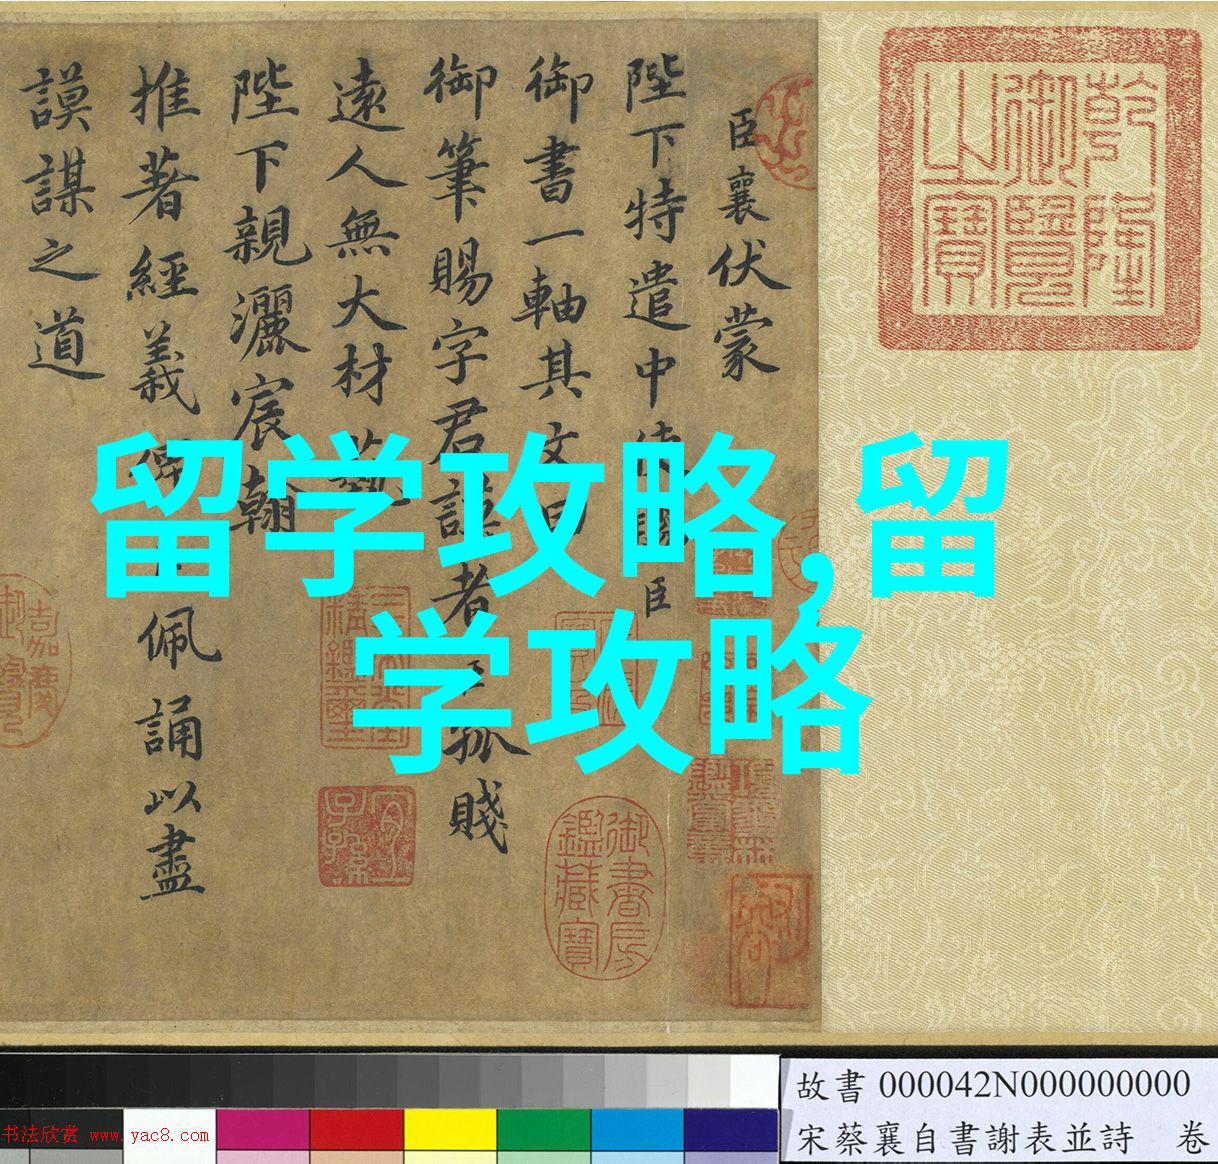 留学攻略,留
学攻略
乾隆
御覽
之寶
臣襄伏蒙
陛下特遣中使
臣
御書一軸其文曰
御筆賜字君謨者臣孤賤
遠人無大材藝
陛下親灑宸翰
推著經義俾
佩誦以盡
謨謀之道
御書房
鑑藏寶
宜
子孫
嘉慶
御覽
故書 000042N000000000
宋蔡襄自書謝表並詩 卷
书法欣赏 www.yac8.com